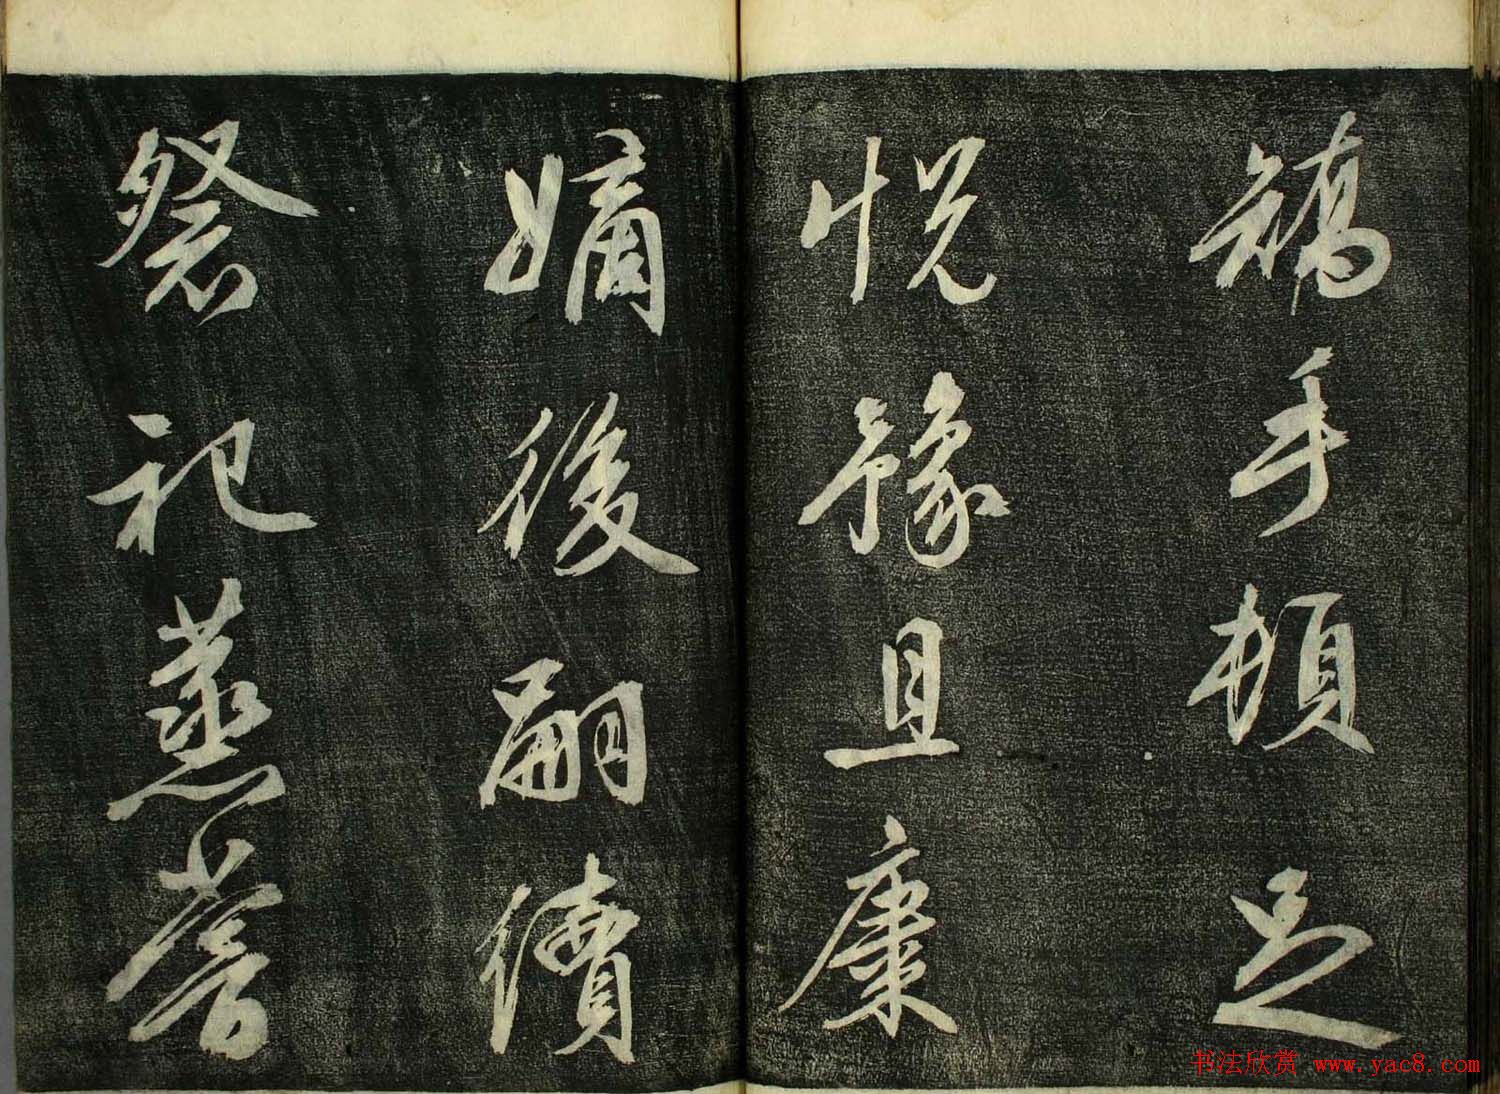 矯手頓足
悅豫且康
嫡後嗣續
祭祀蒸嘗
书法欣赏 www.yac8.com